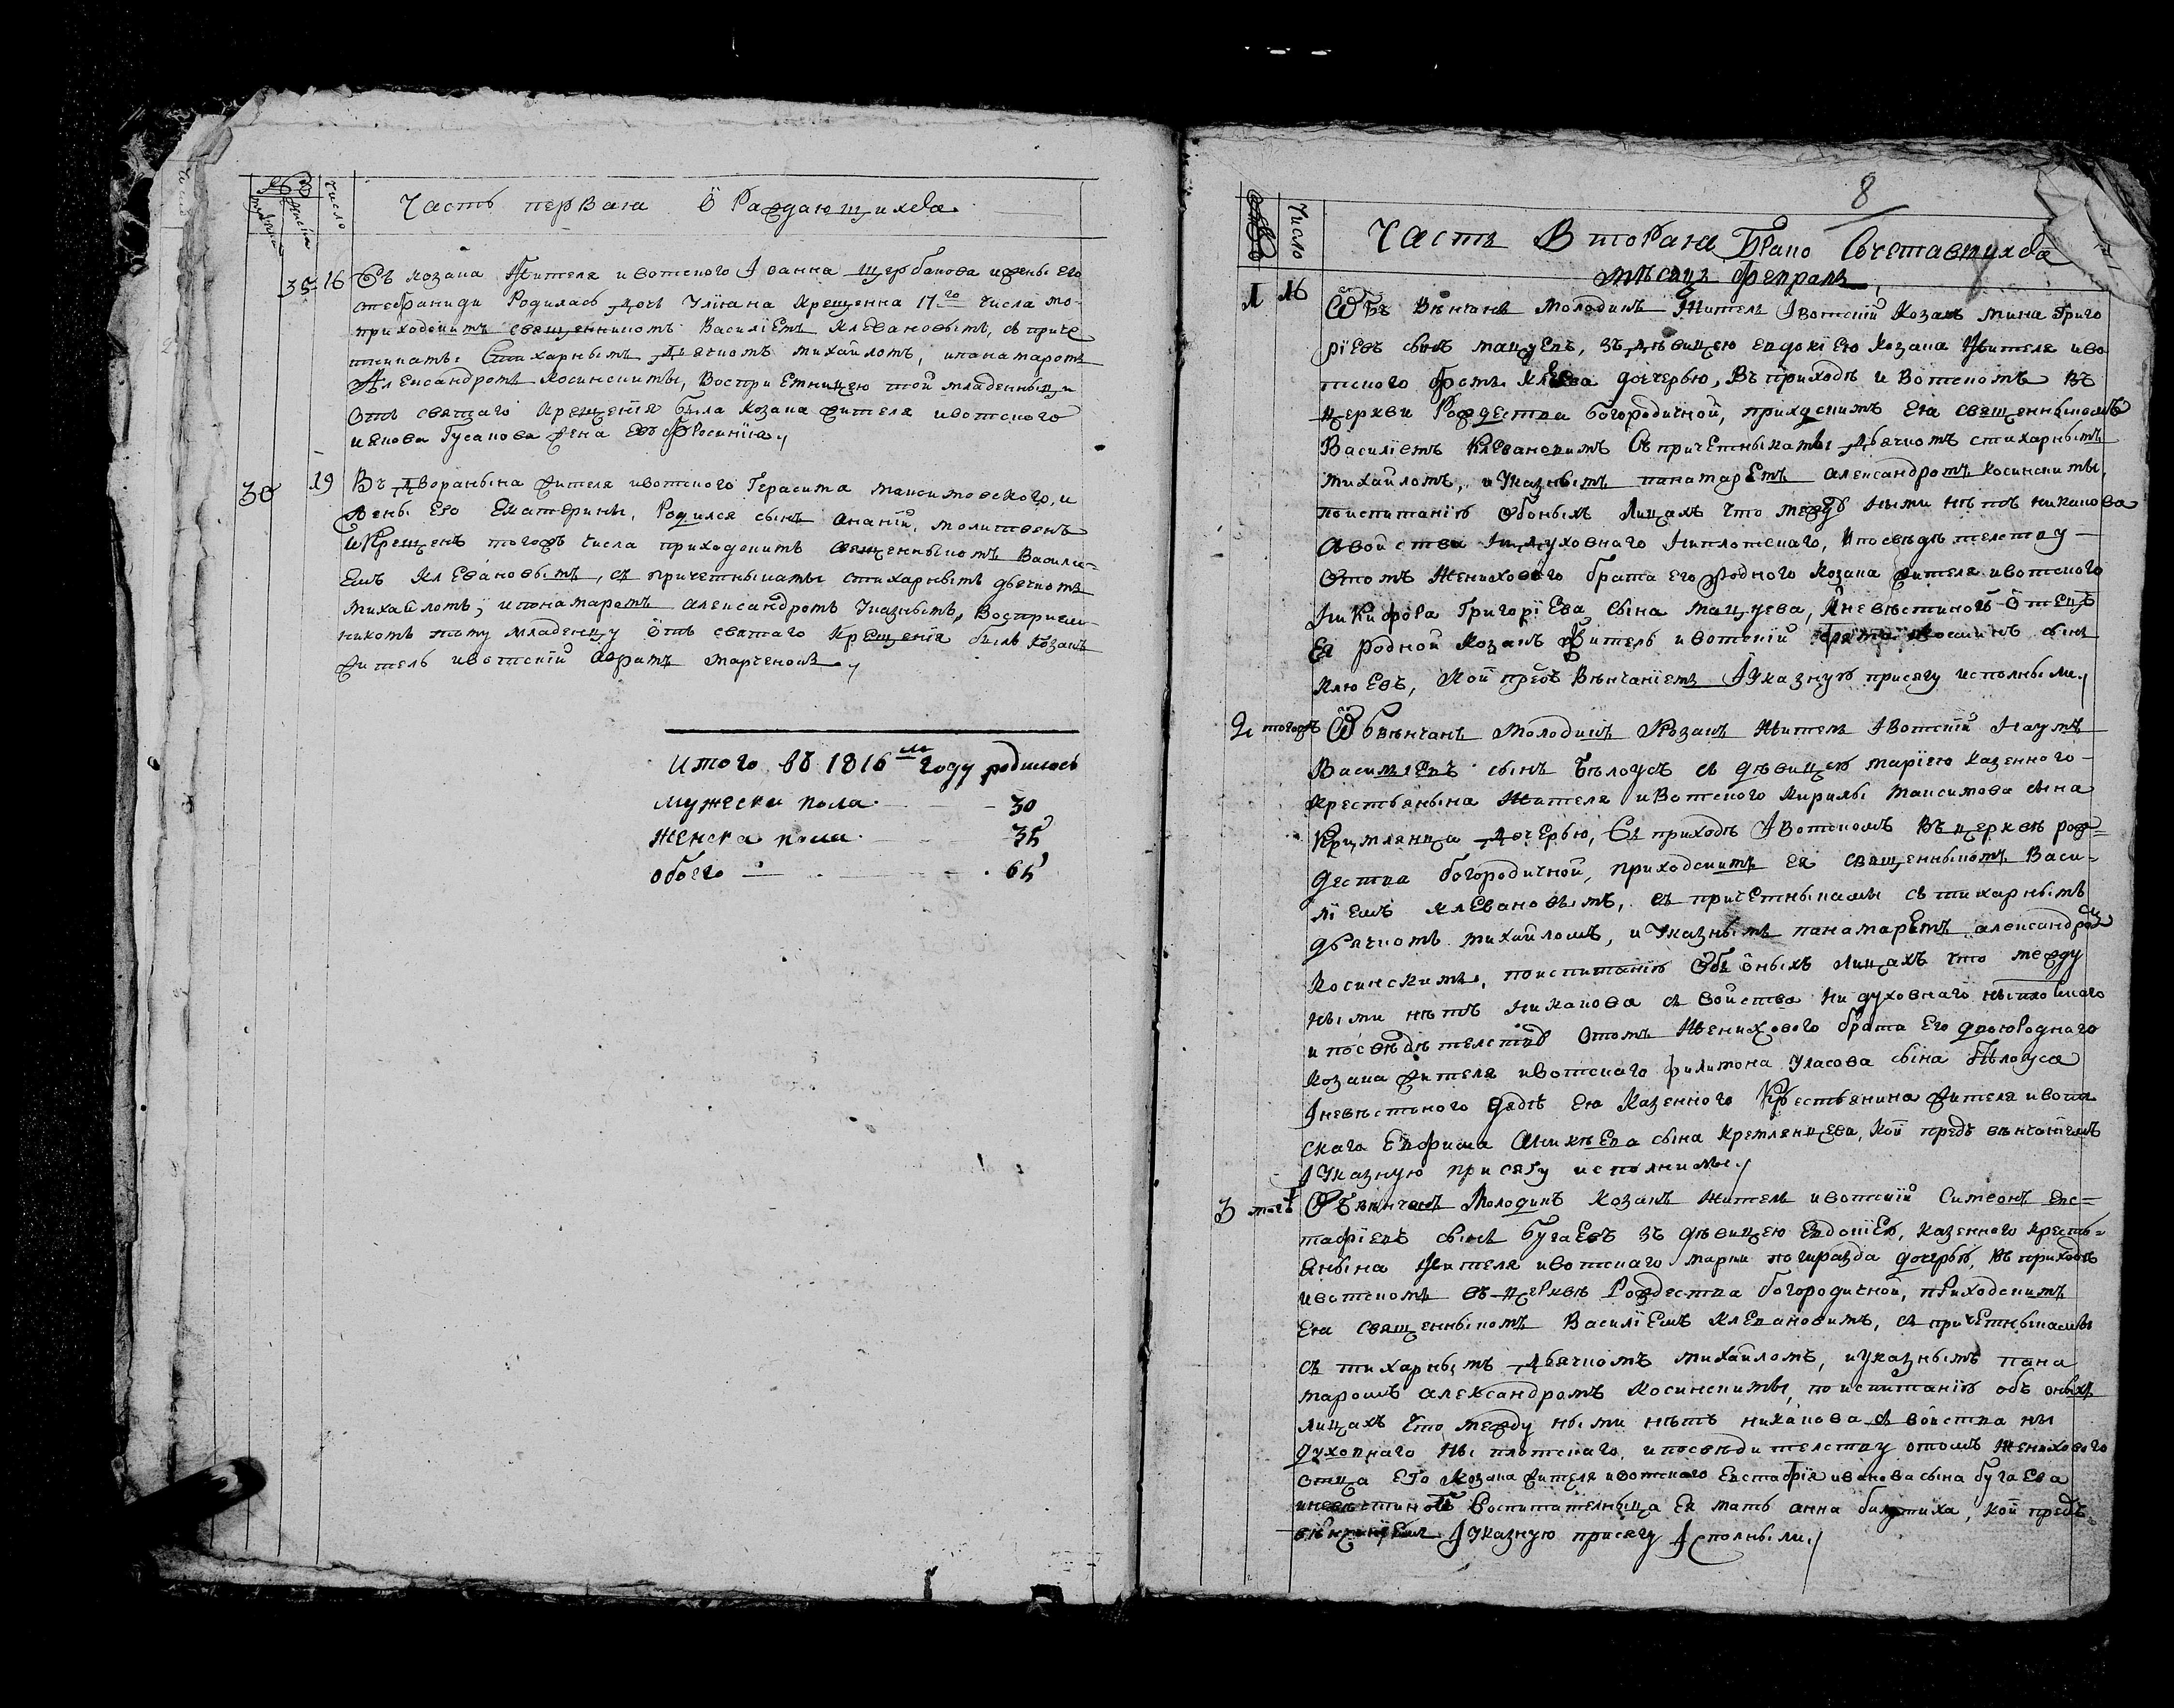 Часть первая о Раждающихся
мужеска
женска
число
35 16 Въ козака жителя ивотского Іоанна Щербакова и жены его
Стефаниди Родилась дочь Уліяна крещенна 17го числа
приходскимъ священникомъ Василіемъ Клевановымъ, съ
Стихарнымъ дьячкомъ михайломъ, и панамаромъ
Александромъ Косинскимы, Воспріемницею той младенницы
Отъ святаго крещенія была козака жителя ивотского
Гусакова жена
30 19 Въ дворянына жителя ивотского Герасима максимовского, и
жены Его Екатерины, Родился сынъ ананій, молитвенъ
и крещенъ тогожъ числа приходскимъ священныкомъ Васили-
емъ Клевановымъ, съ причетныкамы стихарнымъ дьячкомъ
михайломъ, и панамаромъ александромъ указнымъ, Восприем-
никомъ тому младенцу отъ святаго крещенія былъ козакъ
житель ивотскій марченокъ
Итого въ 1816м году родилось
Мужеска пола 30
Женска пола 35
обоего 65
8
Число
Часть Вторая Брако Сочетавшихся
мѣсяцъ февраль
1 16 Обвѣнчанъ молодикъ Житель Ивотскій Козакъ мина Григо
ріевъ сынъ мацуевъ, зъ дѣвицею евдокіею козака жителя иво
тского дочерью, въ приходѣ ивотскомъ въ
церкви Рождества богородичной, приходскимъ ея священныкомъ
Василіемъ Клевановимъ Съ причетныкамы дьячкомъ стихарнымъ
михайломъ, и Указнымъ панамаремъ александромъ косинскимы,
по испитанію обоныхъ лицахъ что между ными нѣтъ никакова
Свойства ни духовнаго ни плотскаго, и по свѣдѣтелству
Отомъ Женихового брата его родного козака жителя ивотского
Никифора Григоріева сына мацуева, и невѣстиной Отецъ
Ея родной козакъ житель ивотскій сынъ
клюевъ, кой предъ Вѣнчаніемъ и Указную присягу исполныли
2 тогожъ Обвѣнчанъ молодикъ козакъ житель Ивотскій Наумъ
Василіевъ сынъ Бѣлоусъ съ дѣвицею маріею казенного
крестьянына жителя ивотского кирилы максимова сына
кримлянца дочерью, Въ приходѣ Ивотскомъ въ церквѣ рож=
дества богородичной, приходскимъ ея священныкомъ Васи-
ліемъ клевановымъ, съ причетныкамы стихарнымъ
дьячкомъ михайломъ, и Указнымъ панамаремъ александромъ
косинскимы, по испитанію объ оныхъ лицахъ что между
ными нѣтъ никакова свойства ни духовнаго ни плотскаго
и по свѣдѣтелству отомъ Женихового брата Его двоюродного
козака жителя ивотскаго филимона Уласова сына Бѣлоуса
И невѣстиного дядѣ Ею казенного крестьянина жителя ивот
скаго Евфима сына кремлянцева, кой предъ вѣнчаніемъ
и Указную присягу исполнилы
3 тогожъ Обвѣнчанъ молодикъ козакъ житель ивотскій Симеонъ евс=
тафіевъ сынъ бугаевъ зъ дѣвицею Евдокіею, казенного кресть=
янына жителя ивотскаго дочерью, въ приходѣ
ивотскомъ въ церквѣ Рождества богородичной, приходскимъ
Ею священныкомъ Василіемъ клевановимъ, съ причетныкамы
стихарнымъ дьячкомъ михайломъ, и указнымъ пана
маромъ александромъ косинскимы, по испитанію объ оныхъ
лицахъ что между ными нѣтъ никакова свойства ны
духовнаго ны плотскаго, и по свѣдителству отомъ Женихового
отца Его козака жителя ивотского Евстафія иванова сына бугаева
и невѣстиной Воспитательныца Ея мать анна, кой предъ
вѣнчаніемъ и Указную присягу исполныли